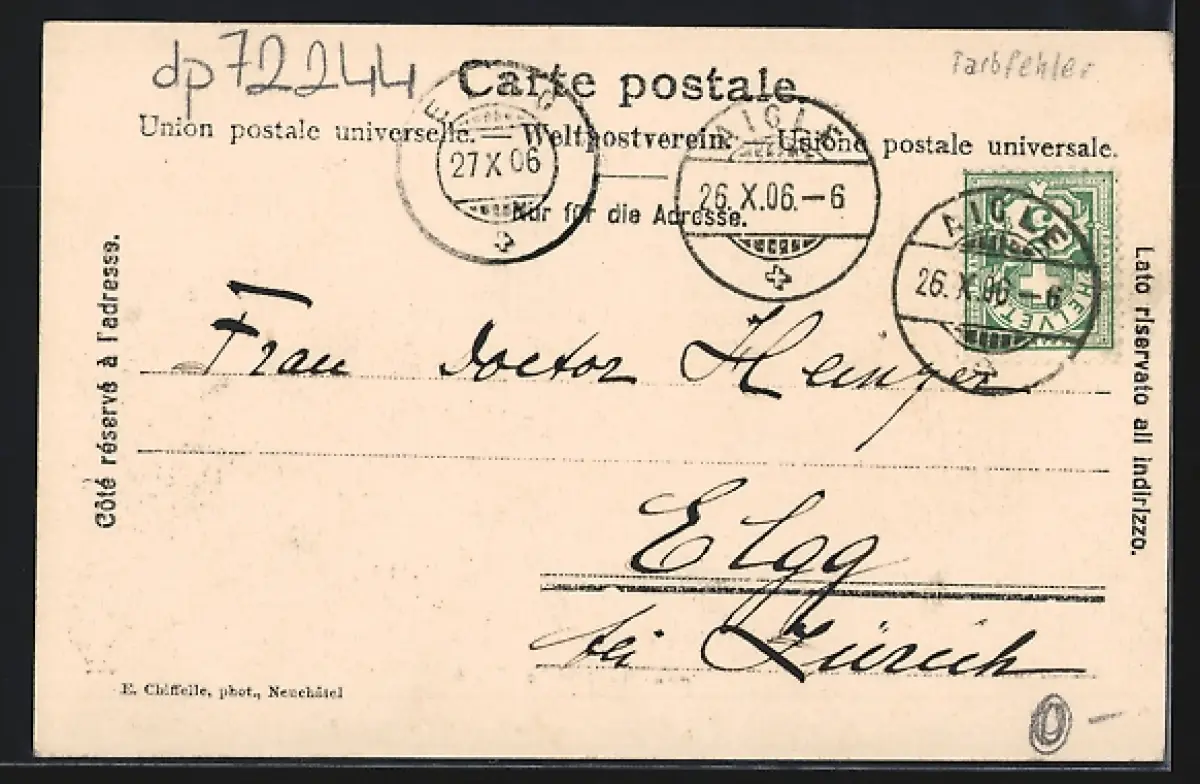 dp72244
Farbfehler
Carte postale.
Union postale universelle. — Weltpostverein. — Unione postale universale.
Nur für die Adresse.
ELGG
27 X 06
AIGLE
26. X. 06. — 6
AIGLE
26. X. 06 — 6
5
HELVETIA
Côté réservé à l'adresse.
Lato riservato all indirizzo.
Frau Doctor
Elgg
bei Zürich
E. Chiffelle, phot., Neuchâtel
0 –